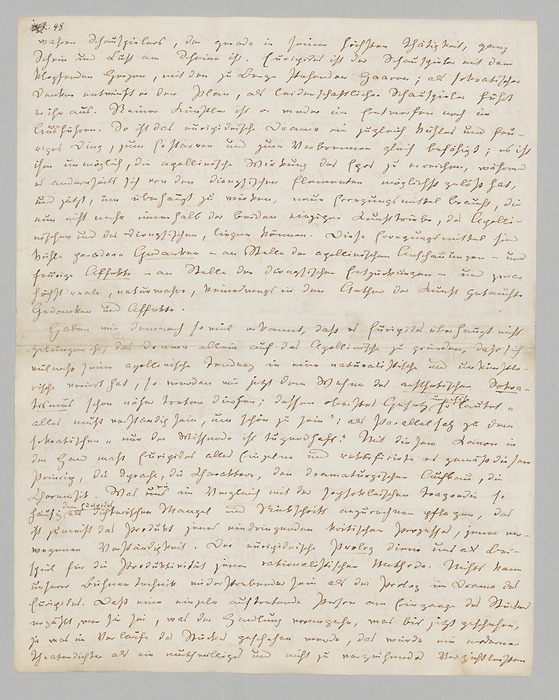 48
wahren Schauspielers, der gerade in seiner höchsten Thätigkeit, ganz
Schein und Lust am Scheine ist. Euripides ist der Schauspieler mit dem
klopfenden Herzen, mit den zu Berge stehenden Haaren; als sokratischer
Denker entwirft er den Plan, als leidenschaftlicher Schauspieler führt
er ihn aus. Reiner Künstler ist er weder im Entwerfen noch im
Ausführen. So ist das euripideische Drama ein zugleich kühles und feu-
riges Ding, zum Erstarren und zum Verbrennen gleich befähigt; es ist
ihm unmöglich, die apollinische Wirkung des Epos zu erreichen, während
es anderseits sich von den dionysischen Elementen möglichst gelöst hat,
und jetzt, um überhaupt zu wirken, neue Erregungsmittel braucht, die
nun nicht mehr innerhalb der beiden einzigen Kunsttriebe, des Apolli-
nischen und des Dionysischen, liegen können. Diese Erregungsmittel sind
kühle paradoxe Gedanken – an Stelle der apollinischen Anschauungen – und
feurige Affekte – an Stelle der dionysischen Entzückungen – und zwar
höchst reale, naturwahre, keineswegs in den Aether der Kunst getauchte
Gedanken und Affekte.
Haben wir demnach so viel erkannt, dass es Euripides überhaupt nicht
gelungen ist, das Drama allein auf das Apollinische zu gründen, dass sich
vielmehr seine apollinische Tendenz in eine naturalistische und unkünstle-
rische verirrt hat, so werden wir jetzt dem Wesen des aesthetischen Sokra-
tismus schon näher treten dürfen; dessen oberstes Gesetz ungefähr so lautet „
alles muss verständig sein, um schön zu sein“; als Parallelsatz zu dem
sokratischen „nur der Wissende ist tugendhaft.“ Mit diesem Kanon in
der Hand mass Euripides alles Einzelne und rektificirte es gemäss diesem
Princip, die Sprache, die Charaktere, den dramaturgischen Aufbau, die
Chormusik. Was wir im Vergleich mit der sophokleischen Tragoedie so
häufig dem Euripides als dichterischen Mangel und Rückschritt anzurechnen pflegen, das
ist zumeist das Produkt jenes eindringenden kritischen Prozesses, jener ver-
wegenen Verständigkeit. Der euripideische Prolog diene uns als Bei-
spiel für die Produktivität jener rationalistischen Methode. Nichts kann
unserer Bühnentechnik widerstrebender sein als der Prolog im Drama des
Euripides. Dass eine einzelne auftretende Person am Eingange des Stückes
erzählt wer sie sei, was der Handlung vorangehe, was bis jetzt geschehen,
ja was im Verlaufe des Stückes geschehen werde, das würde ein moderner
Theaterdichter als ein muthwilliges und nicht zu verzeihendes Verzichtleisten